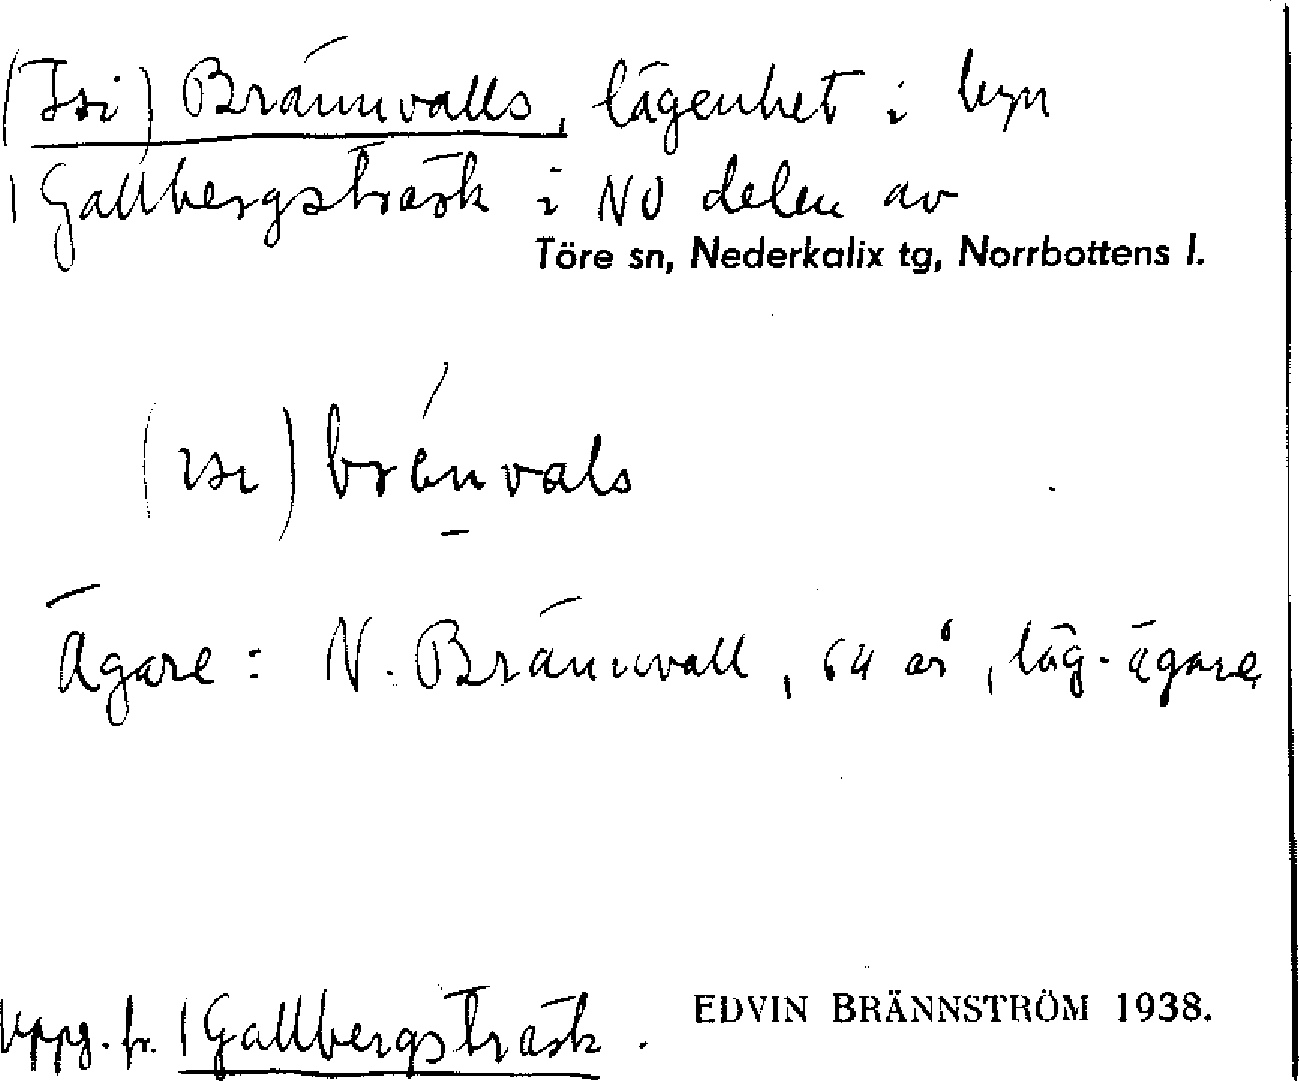 (Isi) Brännvalls, lägenhet i byn
1 Gallbergsträsk i NO delen av
Töre sn, Nederkalix tg, Norrbottens l.
(ısı) brénvals
Ägare: N. Brännvall, 64 år, läg-ägare
Uppg. fr. 1 Gallbergsträsk.
EDVIN BRÄNNSTRÖM 1938.